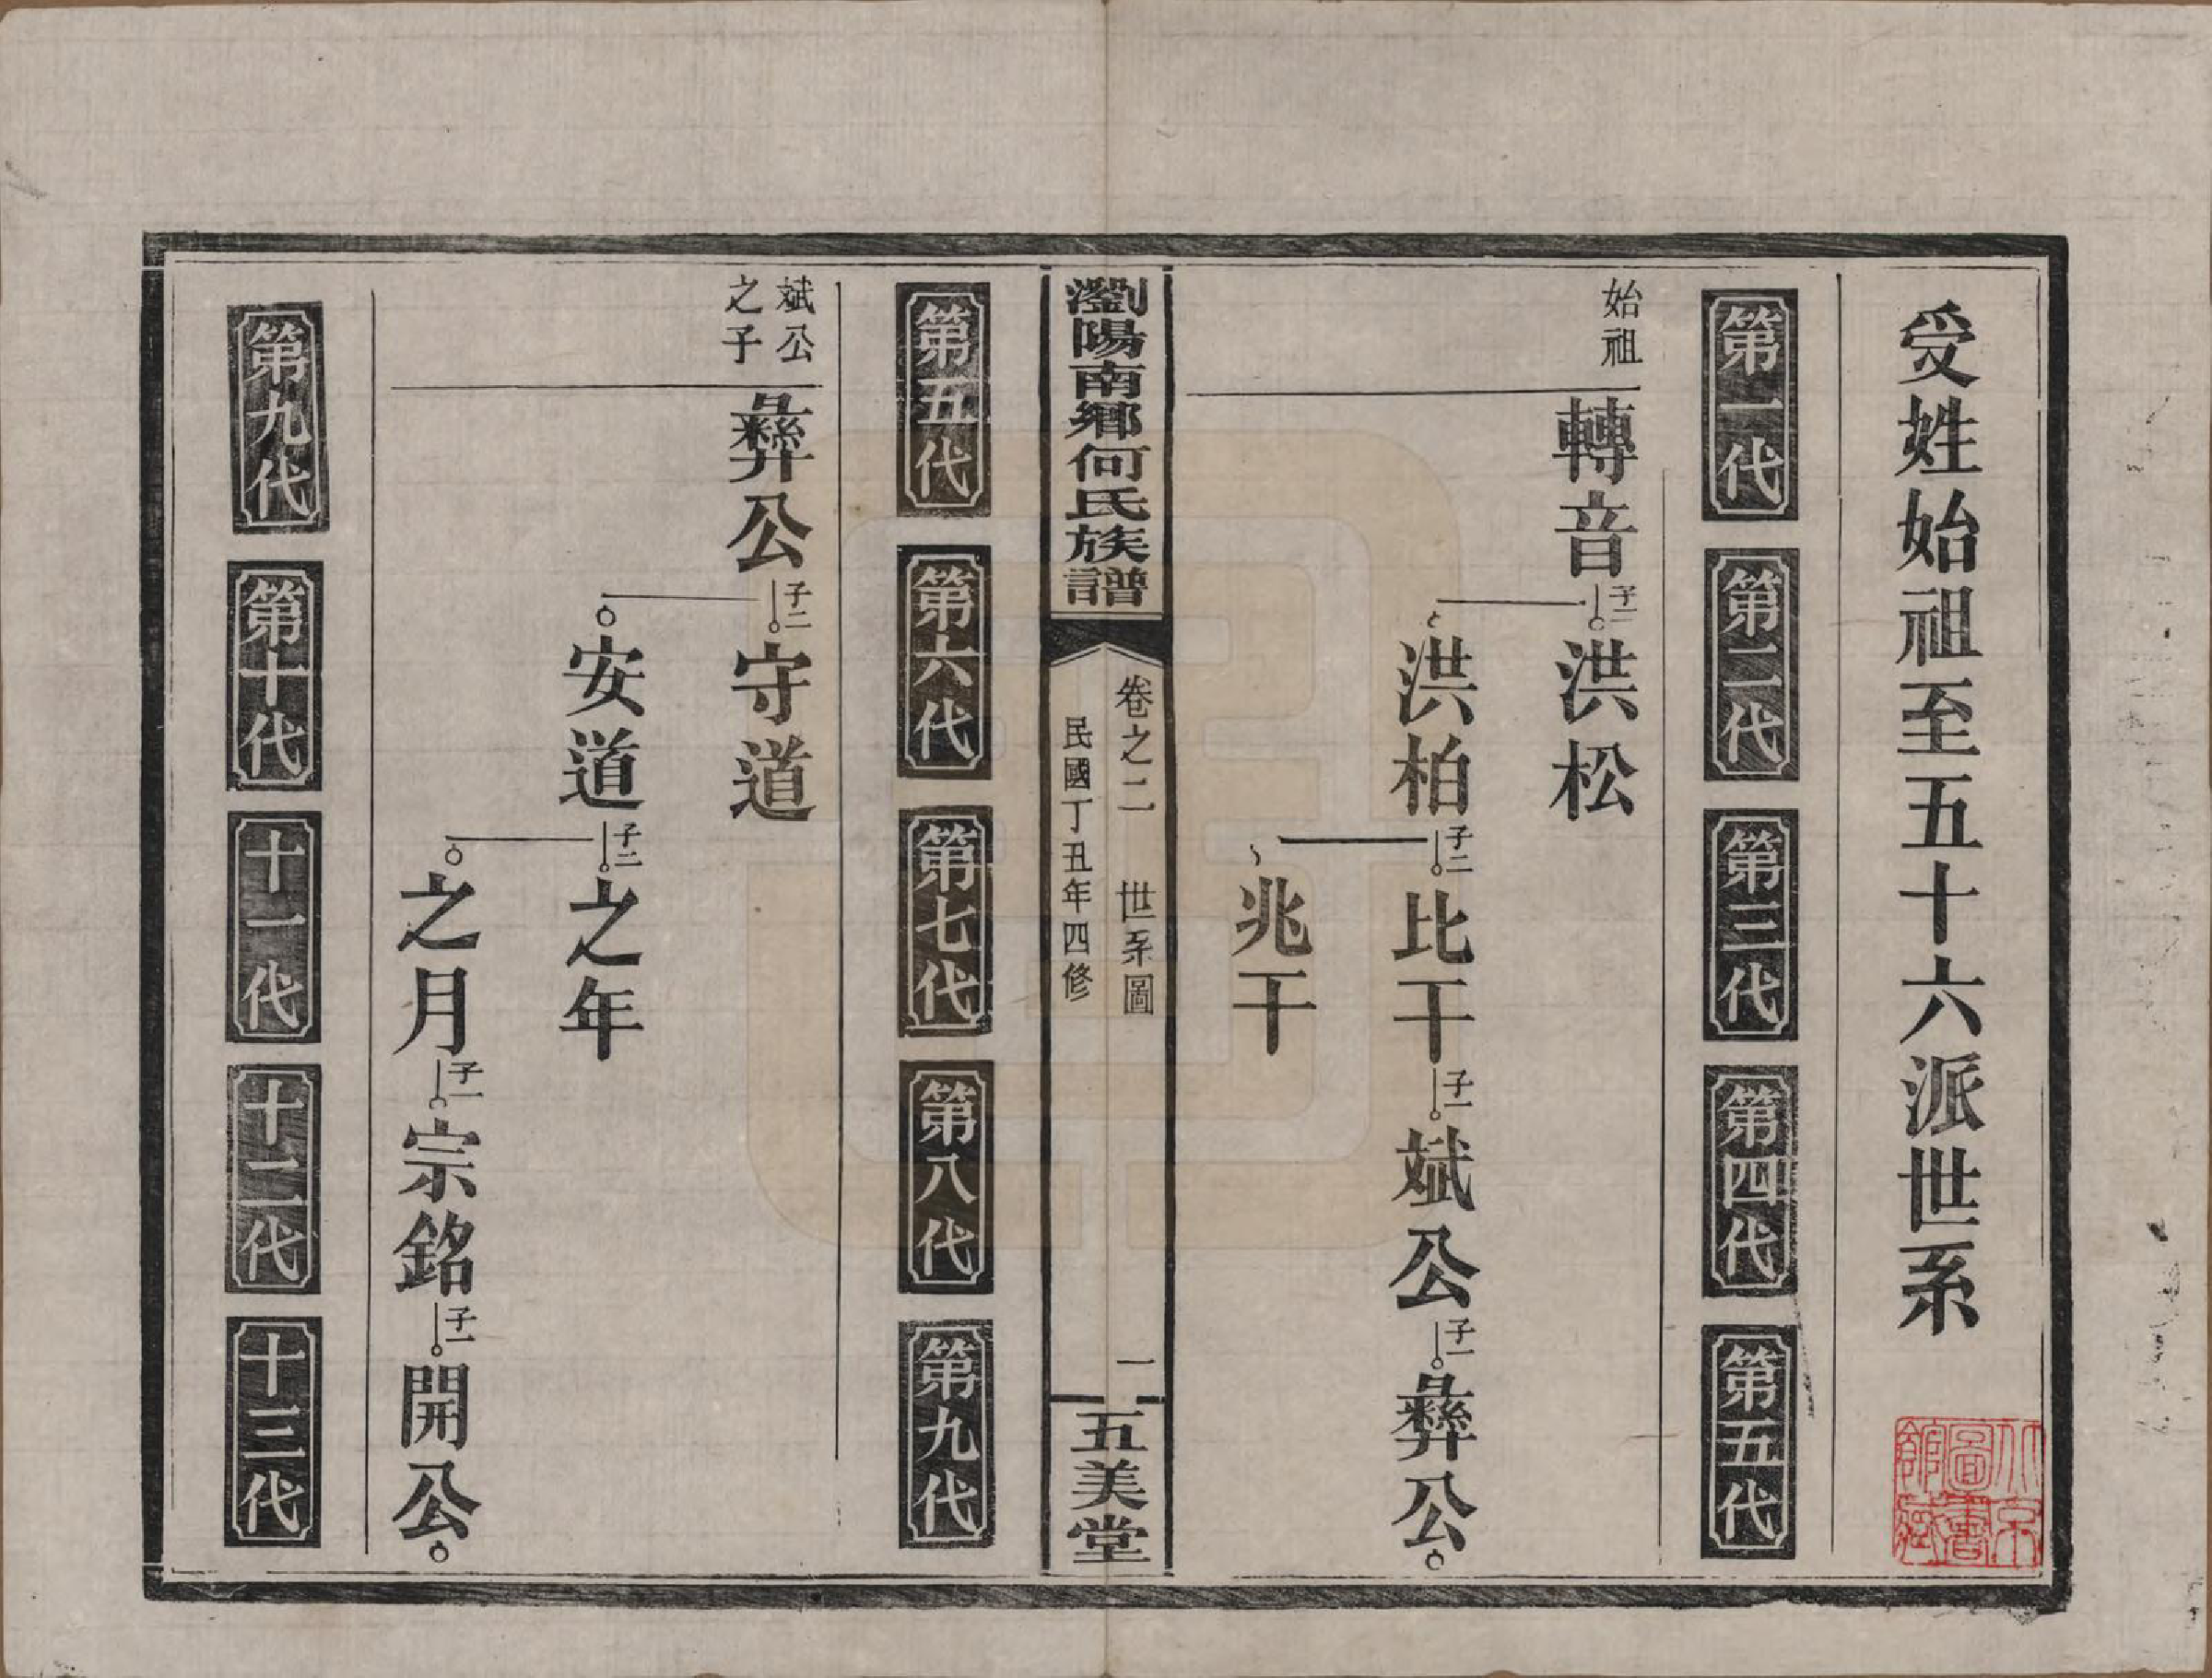 受姓始祖至五十六派世系
第一代
第二代
第三代
第四代
第五代
始祖
轉音
子二
洪松
洪柏
子二
比干
子一
斌公
子一
彝公
兆干
瀏陽南鄉何氏族譜
卷之二 世系圖
一
民國丁丑年四修
五美堂
第五代
第六代
第七代
第八代
第九代
斌公
之子
彝公
子二
守道
安道
子二
之年
之月
子一
宗銘
子一
開公
第九代
第十代
十一代
十二代
十三代
北京
圖書
館藏